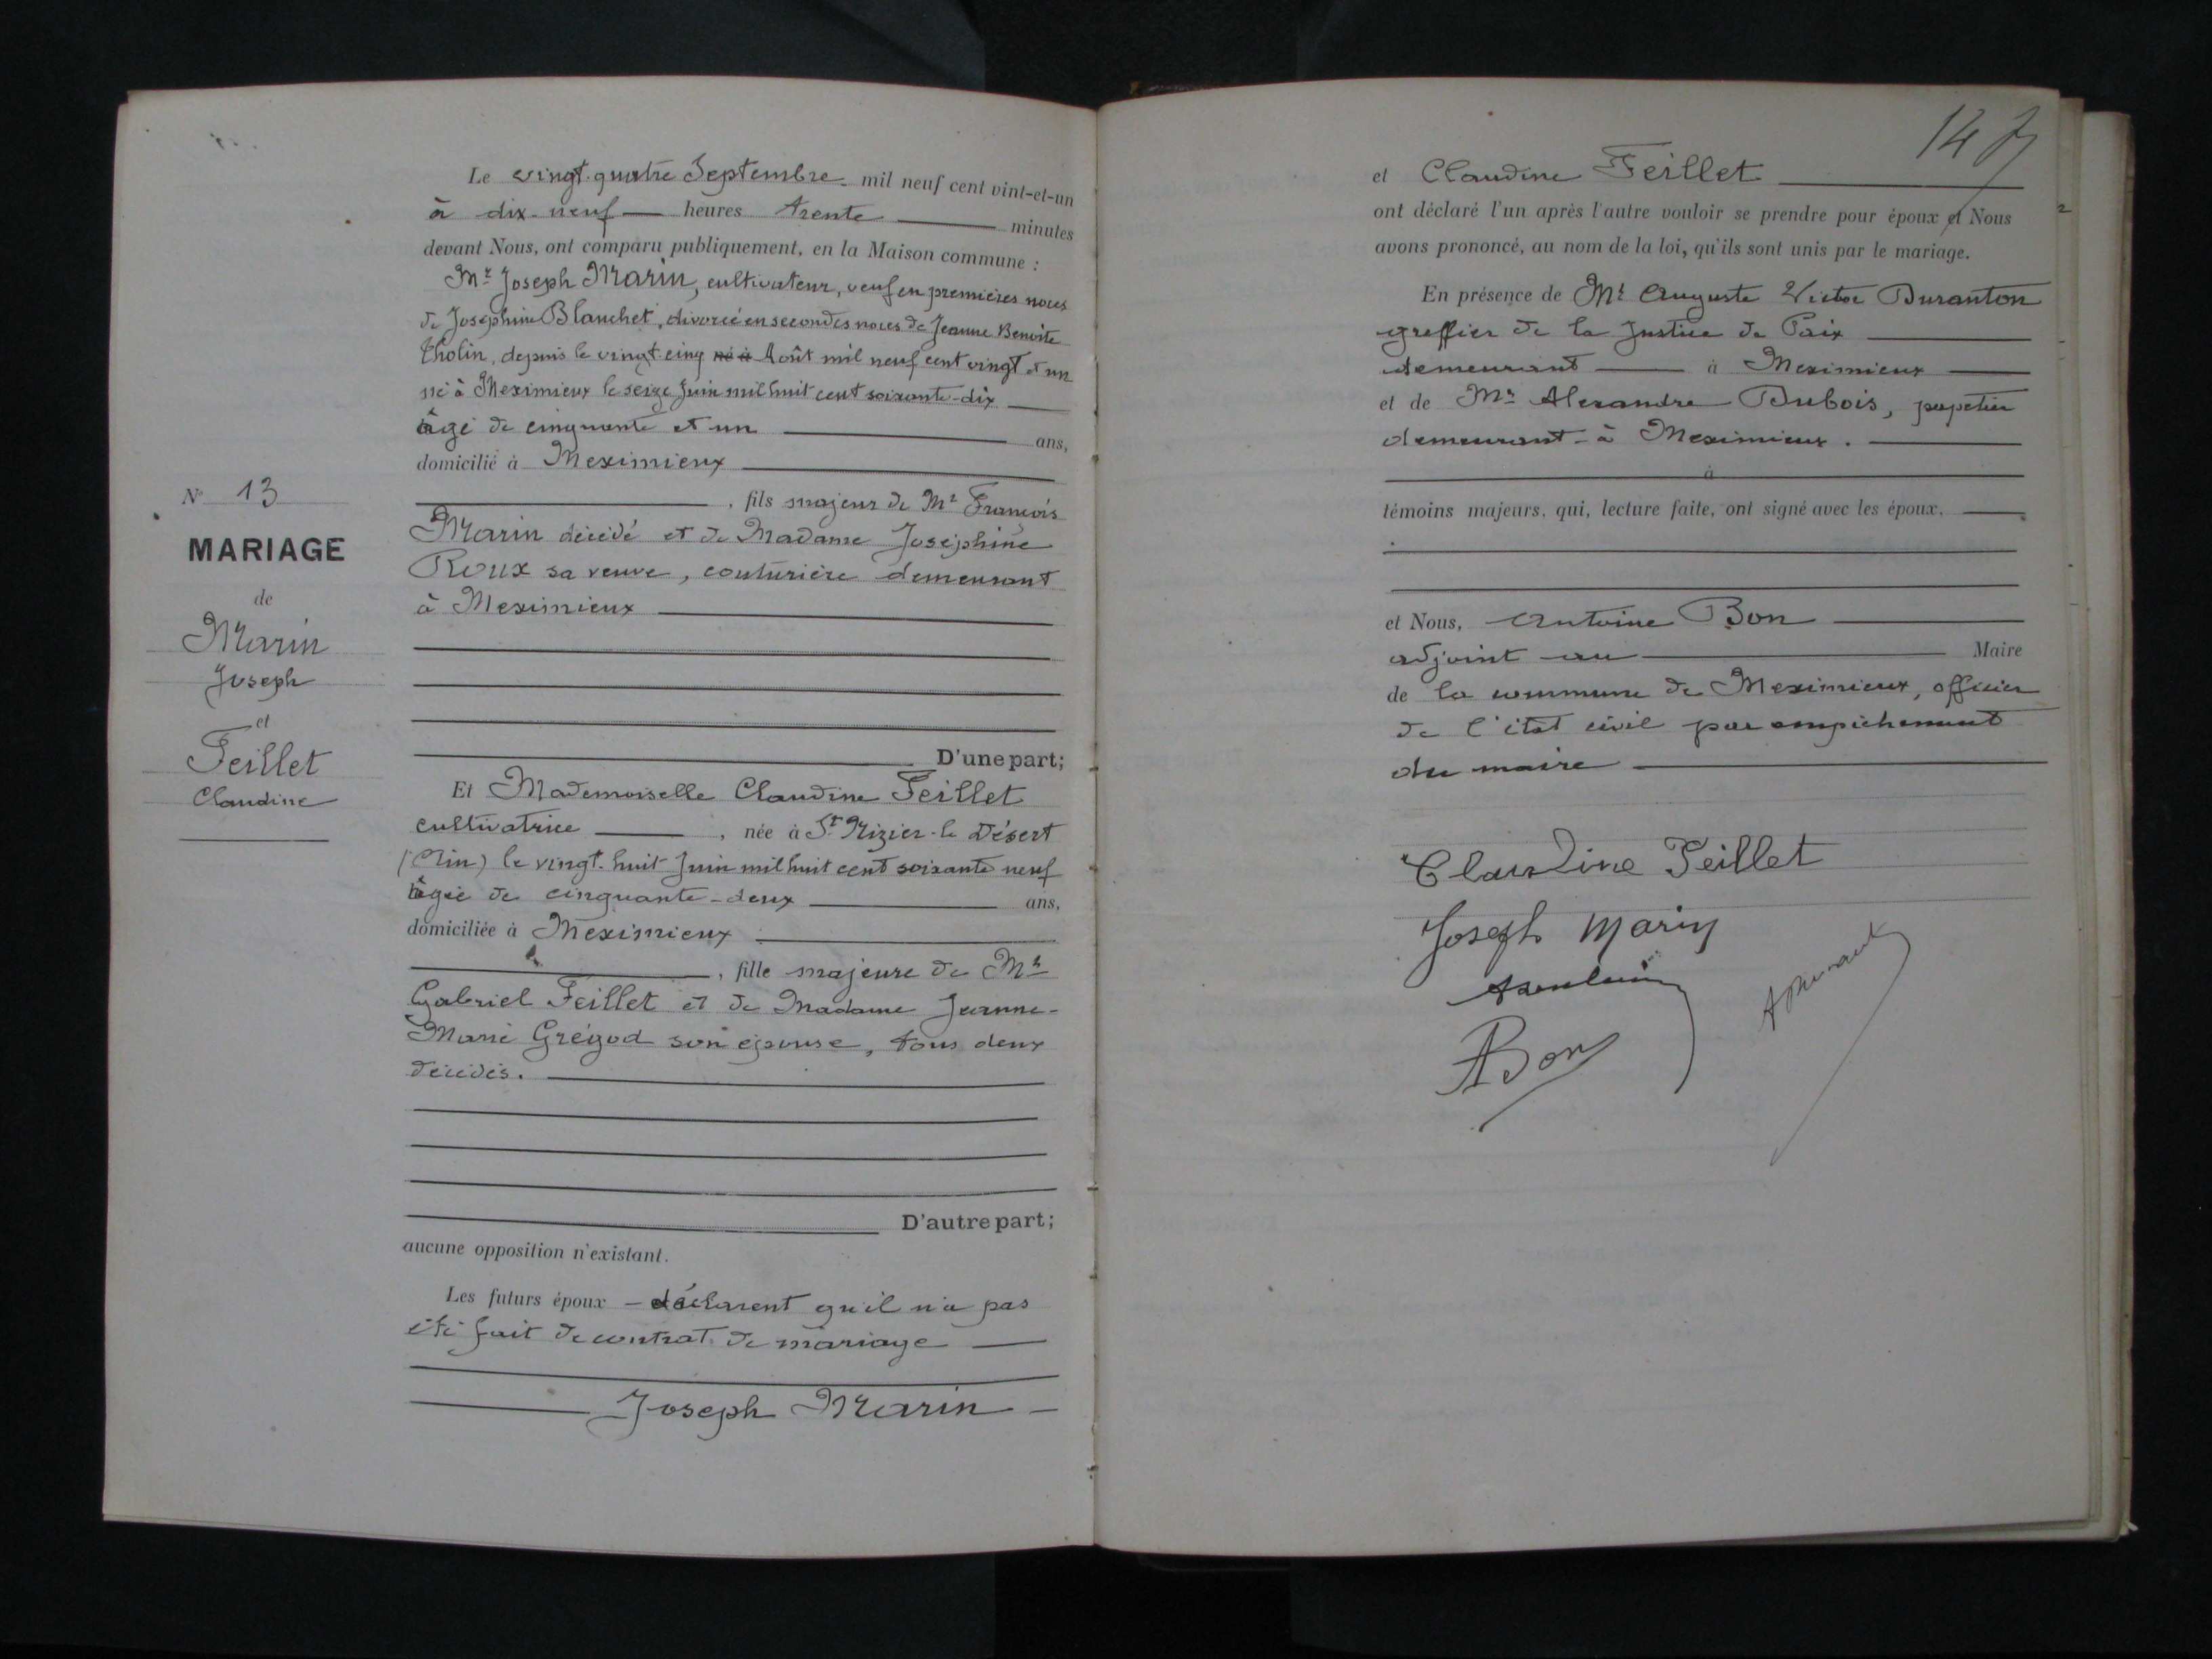 Le vingt-quatre Septembre mil neuf cent vint-et-un
à dix-neuf heures trente minutes
devant Nous, ont comparu publiquement, en la Maison commune :
Mr Joseph Marin, cultivateur, veuf en premières noces
de Joséphine Blanchet, divorcé en secondes noces de Jeanne Benoite
Tholin, depuis le vingt-cinq né à Août mil neuf cent vingt et un
né à Meximieux le seize Juin mil huit cent soixante-dix
âgé de cinquante et un ans,
domicilié à Meximieux
, fils majeur de Mr François
Marin décédé et de Madame Joséphine
Roux sa veuve, couturière demeurant
à Meximieux
D'une part;
N° 13
MARIAGE
de
Marin
Joseph
et
Feillet
Claudine
Et Mademoiselle Claudine Feillet
cultivatrice , née à St Nizier-le Désert
(Ain) le vingt-huit Juin mil huit cent soixante neuf
âgée de cinquante-deux ans,
domiciliée à Meximieux
, fille majeure de Mr
Gabriel Feillet et de Madame Jeanne-
Marie Grégod son épouse, tous deux
décédés.
D'autre part;
aucune opposition n'existant.
Les futurs époux - déclarent qu'il n'a pas
été fait de contrat de mariage
Joseph Marin
147
et Claudine Feillet
ont déclaré l'un après l'autre vouloir se prendre pour époux et Nous
avons prononcé, au nom de la loi, qu'ils sont unis par le mariage.
En présence de Mr Auguste Victor Duranton
greffier de la Justice de Paix
demeurant à Meximieux
et de Mr Alexandre Dubois, papetier
demeurant à Meximieux.
à
témoins majeurs, qui, lecture faite, ont signé avec les époux.
et Nous, Antoine Bon
adjoint au Maire
de la commune de Meximieux, officier
de l'état civil par empêchement
du maire
Claudine Feillet
Joseph Marin
ABon